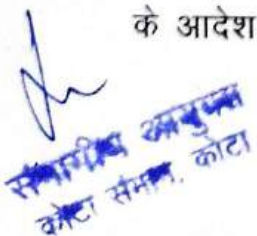 के आदेश
संभागीय आयुक्त
कोटा संभाग, कोटा